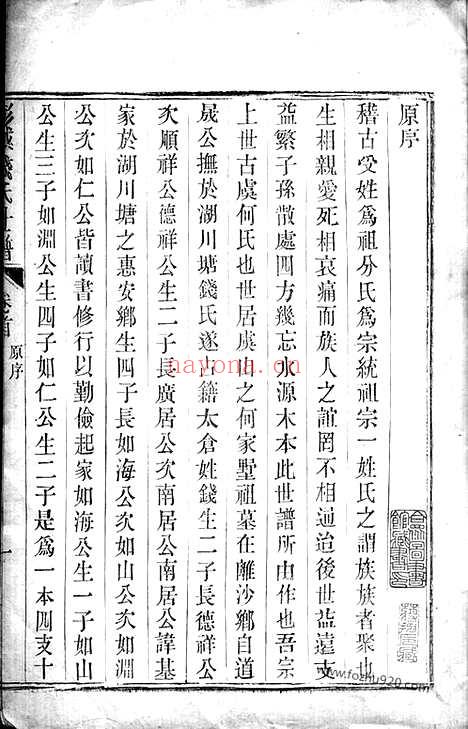 原序
稽古受姓爲祖分氏爲宗統祖宗一姓氏之謂族族者聚也
生相親愛死相哀痛而族人之誼罔不相通迨後世益遠支
益繁子孫散處四方幾忘水源木本此世譜所由作也吾宗
上世古虞何氏也世居虞山之何家墅祖墓在離沙鄉自道
晟公撫於湖川塘錢氏遂占籍太倉姓錢生二子長德祥公
次順祥公德祥公生二子長廣居公次南居公南居公諱基
家於湖川塘之惠安鄉生四子長如海公次如山公次如淵
公次如仁公皆讀書修行以勤儉起家如海公生一子如山
公生三子如淵公生四子如仁公生二子是爲一本四支十
彭城錢氏世譜
卷首
原序
一
nayona.cn
www.fozhu920.com